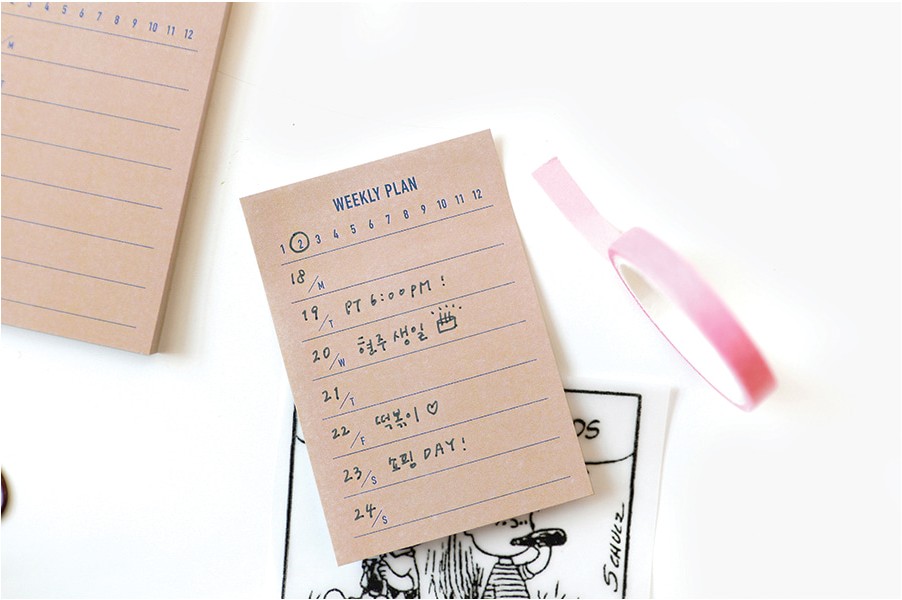 2 3 4 5 6 7 8 9 10 11 12
/M
WEEKLY PLAN
1 2 3 4 5 6 7 8 9 10 11 12
18/M
19/T PT 6:00PM!
20/W 현주생일
21/T
22/F 떡볶이♡
23/S 쇼핑 DAY!
24/S
SCHULZ